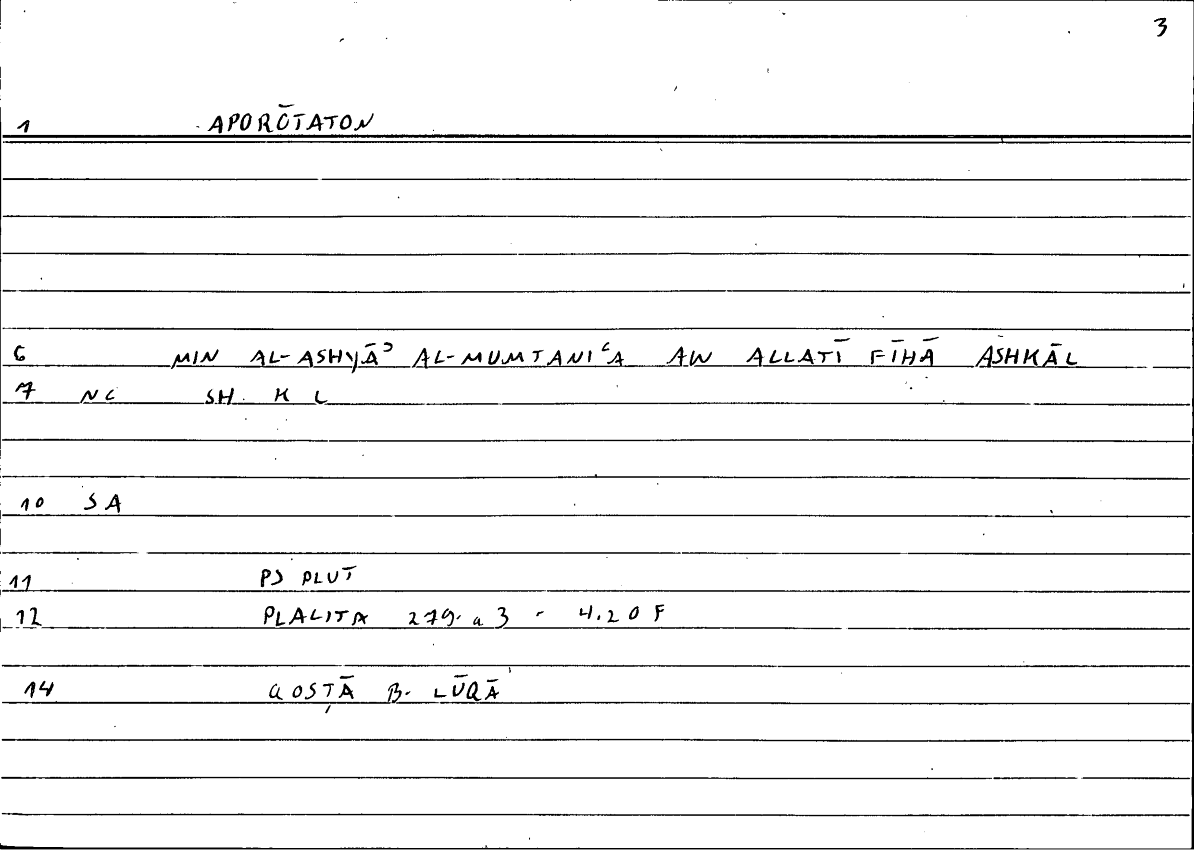 3
1 APORŌTATON
6 MIN AL-ASHYĀʾ AL-MUMTANIʿA AW ALLATĪ FĪHĀ ASHKĀL
7 NC SH K L
10 SA
11 PS PLUT
12 PLALITA 279. a 3 - 4.20 F
14 QOSṬĀ B. LŪQĀ